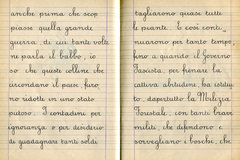 anche prima che scop
piasse quella grande
guerra, di cui tante volte
ne parla il babbo, io
so che queste colline che
circondano il paese, furo
no ridotte in uno stato
pietoso. I contadini per
ignoranza o per desiderio
di guadagnare tanti soldi
tagliarono quasi tutte
le piante. E così conti
nuarono per tanto tempo,
fino a quando il Governo
Fascista, per frenare la
cattiva abitudine, ha istitui
to, dapertutto la Milizia
Forestale, con tanti bravi
militi, che difendono e
sorvegliano i boschi, che